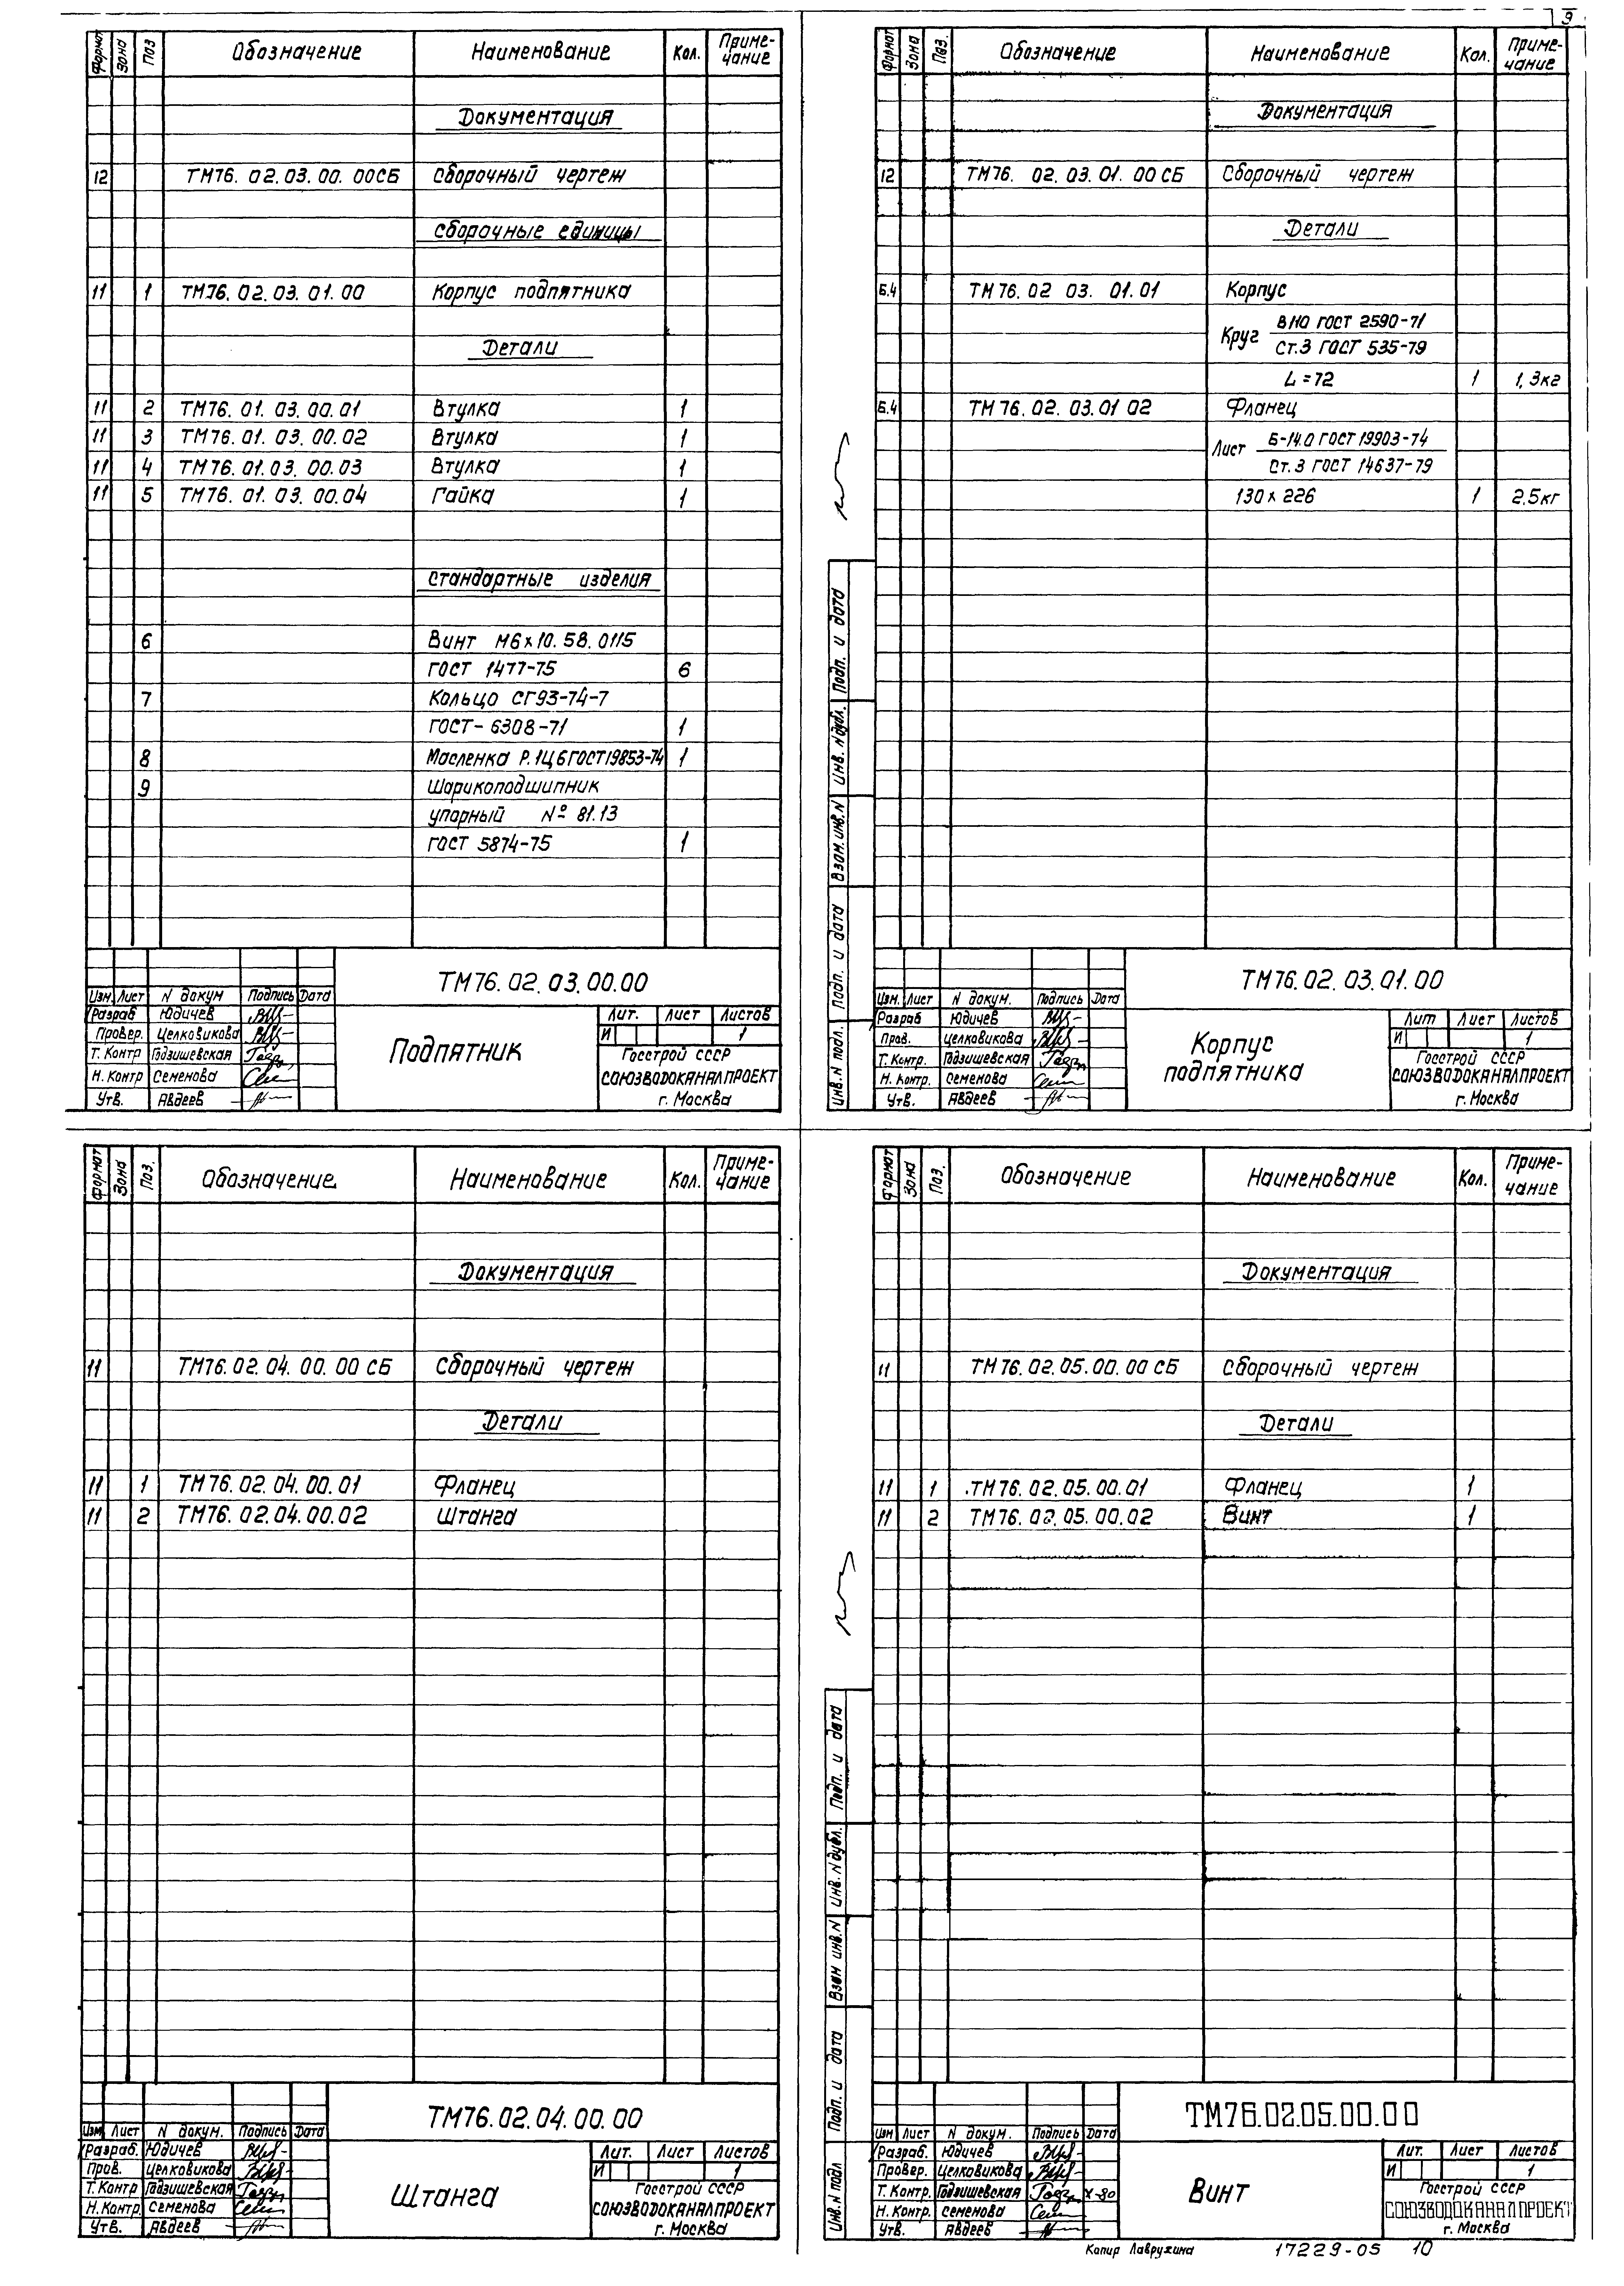 9
Формат Зона Поз Обозначение Наименование Кол. Приме-чание
Документация
12 ТМ76. 02. 03. 00. 00СБ Сборочный чертеж
Сборочные единицы
11 1 ТМ76. 02. 03. 01. 00 Корпус подпятника
Детали
11 2 ТМ76. 01. 03. 00. 01 Втулка 1
11 3 ТМ76. 01. 03. 00. 02 Втулка 1
11 4 ТМ76. 01. 03. 00. 03 Втулка 1
11 5 ТМ76. 01. 03. 00. 04 Гайка 1
Стандартные изделия
6 Винт М6х10. 58. 0115
ГОСТ 1477-75 6
7 Кольцо СГ93-74-7
ГОСТ- 6308-71 1
8 Масленка Р.1Ц6ГОСТ19853-74 1
9 Шарикоподшипник
упорный № 81.13
ГОСТ 5874-75 1
ТМ76. 02. 03. 00. 00
Изм. Лист N докум Подпись Дата
Разраб Юдичев
Провер. Целковикова
Т. Контр Годзишевская
Н. Контр Семенова
Утв. Авдеев
Подпятник
Лит. Лист Листов
И 1
Госстрой СССР
СОЮЗВОДОКАНАЛПРОЕКТ
г. Москва
Формат Зона Поз. Обозначение Наименование Кол. Приме-чание
Документация
12 ТМ76. 02. 03. 01. 00 СБ Сборочный чертеж
Детали
Б.4 ТМ76. 02 03. 01. 01 Корпус
Круг В110 ГОСТ 2590-71
Ст.3 ГОСТ 535-79
L = 72 1 1,3кг
Б.4 ТМ76. 02. 03. 01 02 Фланец
Лист Б-14.0 ГОСТ 19903-74
Ст. 3 ГОСТ 14637-79
130 х 226 1 2.5кг
Подп. и дата
Инв. N дубл.
Взам. инв. N
Подп. и дата
Инв. N подл.
ТМ76. 02. 03. 01. 00
Изм. Лист N докум. Подпись Дата
Разраб Юдичев
Пров. Целковикова
Т. Контр. Годзишевская
Н. Контр. Семенова
Утв. Авдеев
Корпус
подпятника
Лит Лист Листов
И 1
Госстрой СССР
СОЮЗВОДОКАНАЛПРОЕКТ
г. Москва
Формат Зона Поз. Обозначение Наименование Кол. Приме-чание
Документация
11 ТМ76. 02. 04. 00. 00 СБ Сборочный чертеж
Детали
11 1 ТМ76. 02. 04. 00. 01 Фланец
11 2 ТМ76. 02. 04. 00. 02 Штанга
ТМ76. 02. 04. 00. 00
Изм Лист N докум. Подпись Дата
Разраб. Юдичев
Пров. Целковикова
Т. Контр Годзишевская
Н. Контр. Семенова
Утв. Авдеев
Штанга
Лит. Лист Листов
И 1
Госстрой СССР
СОЮЗВОДОКАНАЛПРОЕКТ
г. Москва
Формат Зона Поз. Обозначение Наименование Кол. Приме-чание
Документация
11 ТМ76. 02. 05. 00. 00 СБ Сборочный чертеж
Детали
11 1 ТМ76. 02. 05. 00. 01 Фланец 1
11 2 ТМ76. 02. 05. 00. 02 Винт 1
Подп. и дата
Инв. N дубл.
Взам инв. N
Подп. и дата
Инв. N подл
ТМ76.02.05.00.00
Изм Лист N докум. Подпись Дата
Разраб. Юдичев
Провер. Целковикова
Т. Контр. Годзишевская X-80
Н. Контр. Семенова
Утв. Авдеев
Винт
Лит. Лист Листов
И 1
Госстрой СССР
СОЮЗВОДОКАНАЛПРОЕКТ
г. Москва
Копир Лаврухина 17229-05 10